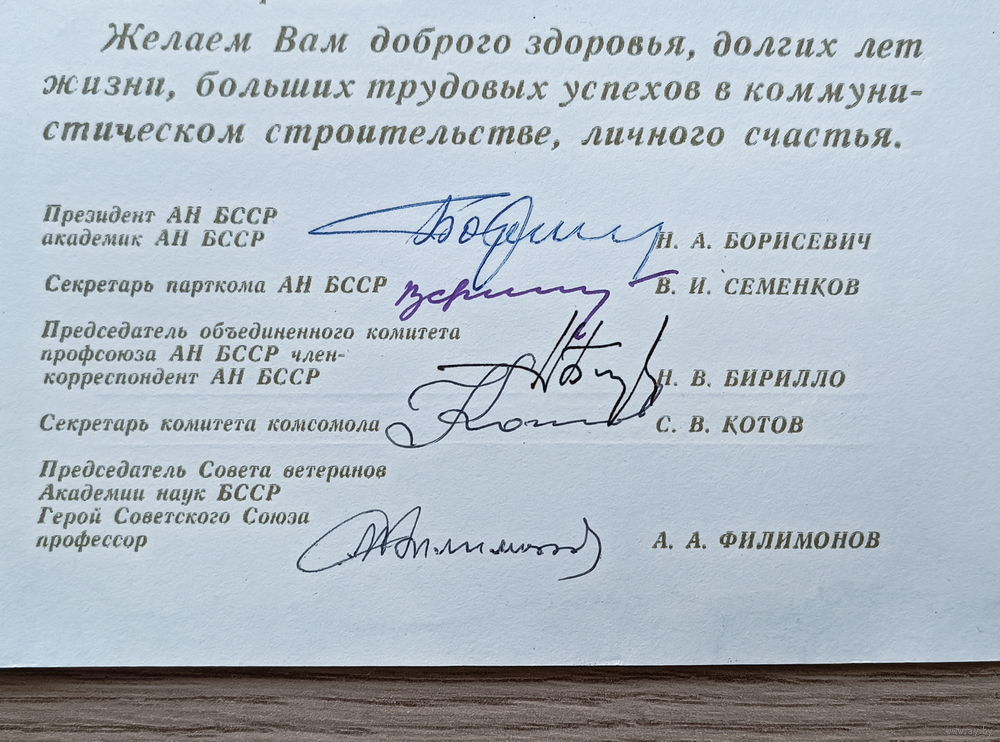 Желаем Вам доброго здоровья, долгих лет
жизни, больших трудовых успехов в коммуни-
стическом строительстве, личного счастья.
Президент АН БССР
академик АН БССР
Н. А. БОРИСЕВИЧ
Секретарь парткома АН БССР
В. И. СЕМЕНКОВ
Председатель объединенного комитета
профсоюза АН БССР член-
корреспондент АН БССР
Н. В. БИРИЛЛО
Секретарь комитета комсомола
С. В. КОТОВ
Председатель Совета ветеранов
Академии наук БССР
Герой Советского Союза
профессор
А. А. ФИЛИМОНОВ
www.ay.by